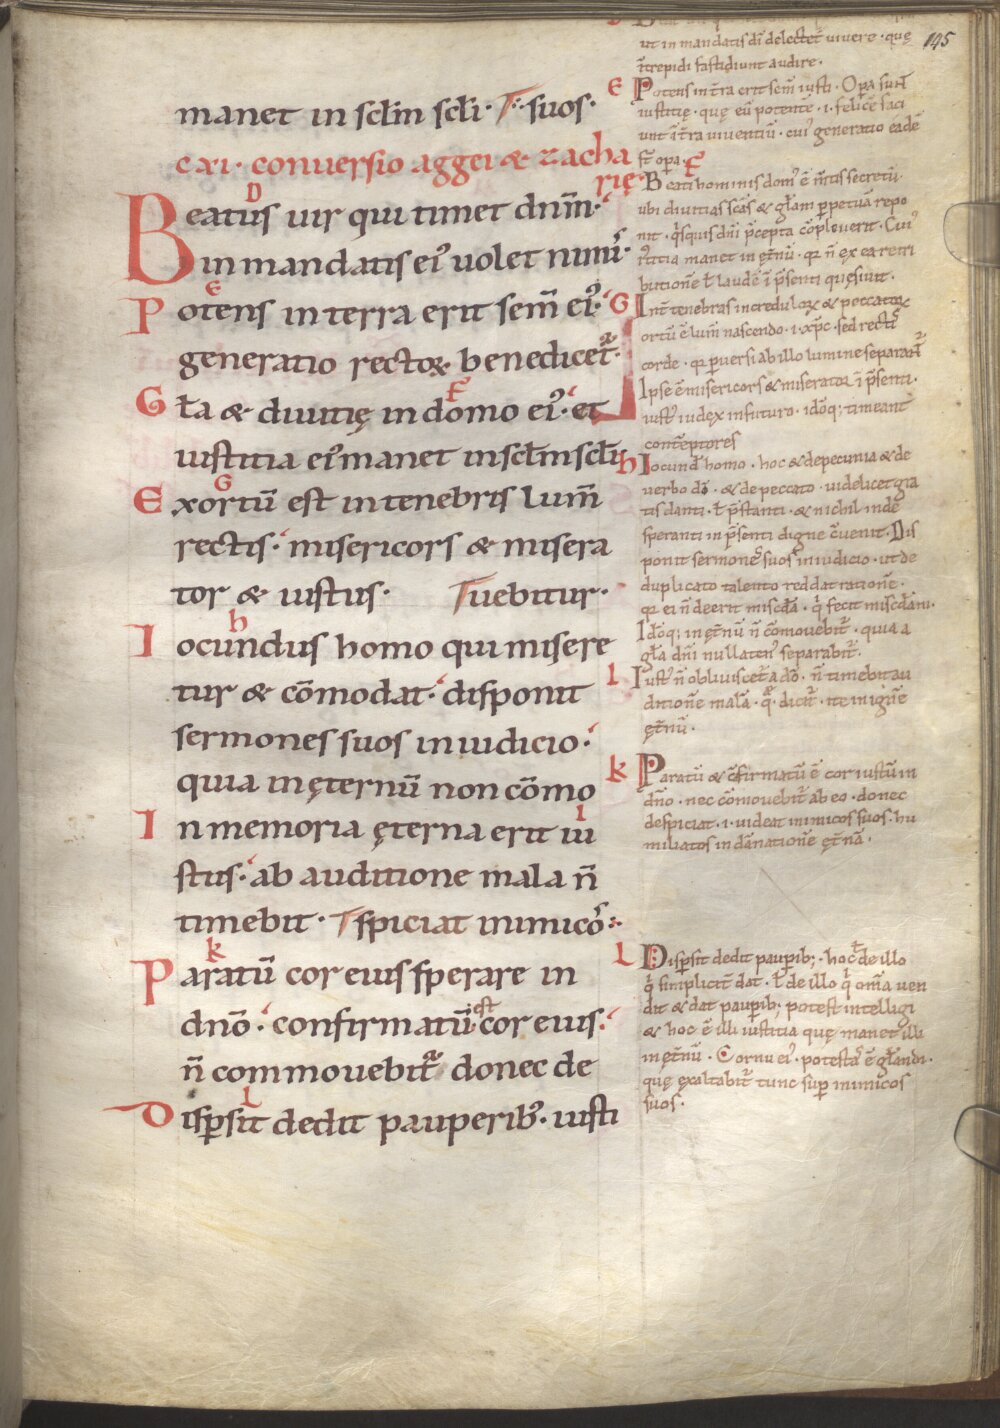 manet in sclm scli · suos ·
cxi · conversio aggei & zacha
rię
Beatus uir qui timet dnm ·
in mandatis ei' uolet nimis ·
Potens in terra erit sem̄ ei' ·
generatio rectoꝝ benedicet̄ ·
Gła & diuitię in domo ei' · et
iustitia ei' manet in sclm scli
Exortū est in tenebris lum̄
rectis · misericors & misera
tor & iustus · uebitur ·
Iocundus homo qui misere
tur & cōmodat · disponit
sermones suos in iudicio ·
quia in ęternū non cōmo
In memoria ęterna erit iu
stus · ab auditione mala n̄
timebit · spiciat inimicos
Paratū cor eius sperare in
dnō · confirmatū est cor eius ·
n̄ commouebit̄ donec de
Dispsit dedit pauperib' · iusti
145
ut in mandatis di delectet̄ uivere · quę
trepidi fastidiunt audire ·
E Potens in t̄ra erit sem̄ iusti · Opa sunt
iustitię · quę eū potentē · i · felicē faci
unt i t̄ra uiuentiū · cui' generatio eadē
st̄ opa ·
F Beati hominis dom' ē mtis secretū
ubi diuitias scas & głam ppetuā repo
nit · qsquis dni pcepta cōpleuerit · Cui'
manet in ęt̄nū · qr n̄ ex ea retri
butionē ł laudē i psenti quęsiuit ·
G In t̄nebras increduloꝝ & peccatoꝝ
ortū ē lum̄ nascendo · i · xpc · sed rectis
corde · qr puersi ab illo lumine separant̄
Ipse ē misericors & miserator i psenti ·
iust' iudex in futuro · idoq; timeant
contēptores
h Iocund' homo · hoc & de pecunia & de
uerbo dō · & de peccato · uidelicet gra
tis danti · ł pstanti · & nichil inde
speranti in psenti digne cuenit · Dis
ponit sermones suos in iudicio · ut de
duplicato talento reddat rationē ·
qr ei n̄ deerit miscdā · q fecit miscdām ·
Idoq; in ęt̄nū n̄ cōmouebit̄ · quia a
gła dni nullaten' separabit̄ ·
I Iust' n̄ obliuiscet̄ a dō · n̄ timebit au
ditionē malā · q dicit̄ · ite in ignē
ęt̄nū ·
k Paratū & cfirmatū ē cor iustū in
dno · nec cōmouebit̄ ab eo · donec
despiciat · i · uideat inimicos suos · hu
miliatos in dānationē ęt̄nā ·
L Dispsit dedit paupib; · hoc ł de illo
q simplicit̄ dat · ł de illo q omā uen
dit & dat paupib; potest intelligi
& hoc ē illi iustitia quę manet illi
in ęt̄nū · Cornu ei' · potestas ē głandi ·
quę exaltabit̄ tunc sup inimicos
suos ·